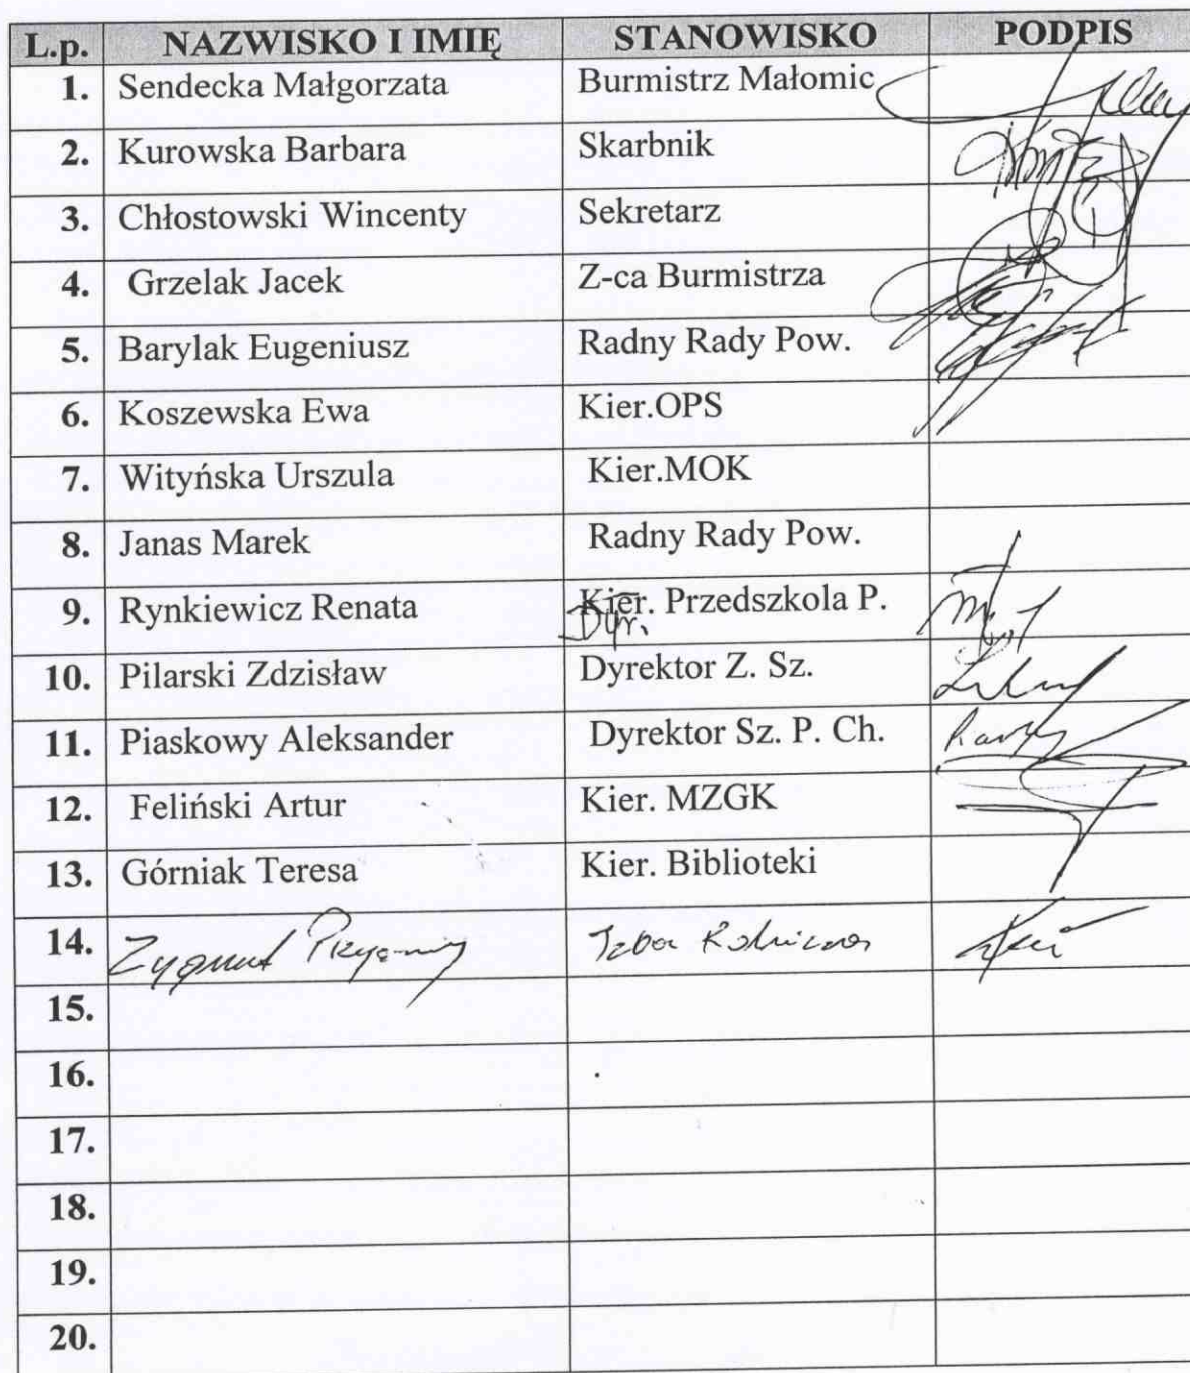 L.p. NAZWISKO I IMIĘ STANOWISKO PODPIS
1. Sendecka Małgorzata Burmistrz Małomic
2. Kurowska Barbara Skarbnik
3. Chłostowski Wincenty Sekretarz
4. Grzelak Jacek Z-ca Burmistrza
5. Barylak Eugeniusz Radny Rady Pow.
6. Koszewska Ewa Kier.OPS
7. Wityńska Urszula Kier.MOK
8. Janas Marek Radny Rady Pow.
9. Rynkiewicz Renata Kier. Przedszkola P.
Dyr.
10. Pilarski Zdzisław Dyrektor Z. Sz.
11. Piaskowy Aleksander Dyrektor Sz. P. Ch.
12. Feliński Artur Kier. MZGK
13. Górniak Teresa Kier. Biblioteki
14. Zygmunt Izba Rolnicza
15.
16.
17.
18.
19.
20.